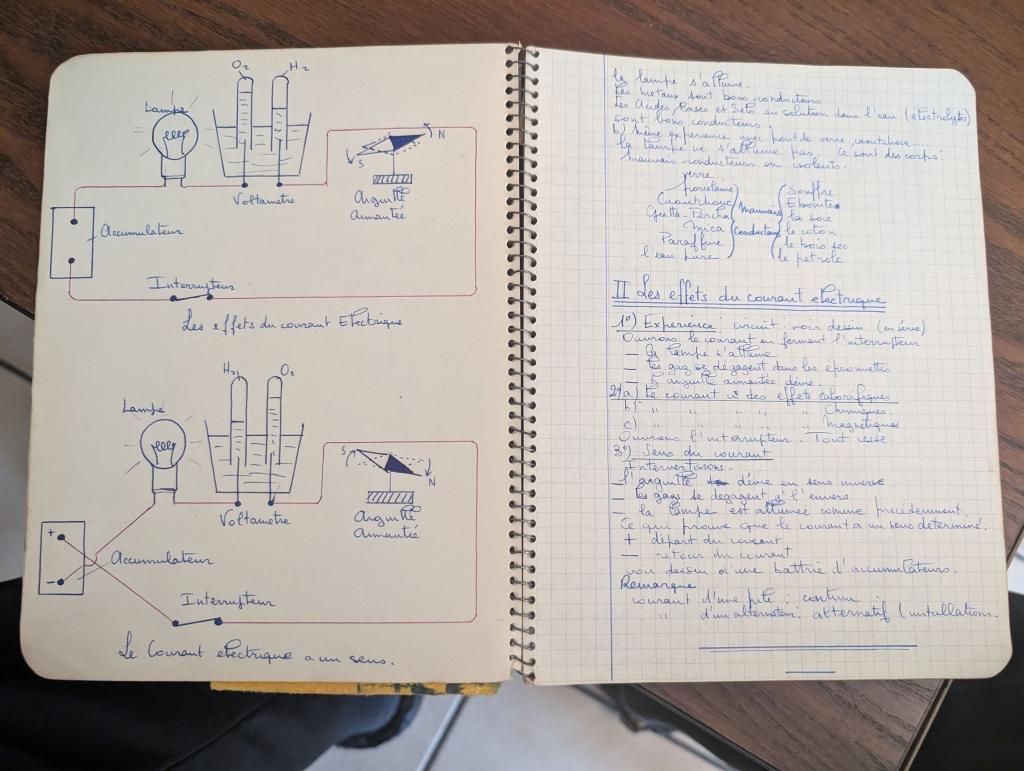 O₂ H₂
Lampe
N
S
Voltametre
Aiguille
Aimantée
Accumulateur
Interrupteur
Les effets du courant Electrique
H₂ O₂
Lampe
S
N
Voltametre
Aiguille
Aimantée
+
Accumulateur
−
Interrupteur
Le Courant electrique a un sens.
la lampe s'allume.
Les metaux sont bons conducteurs
Les Acides, Bases et Sels en solution dans l'eau (électrolytes)
sont bons conducteurs.
b) même experience avec pont de verre, caoutchouc....
la lampe ne s'allume pas. Ce sont des corps:
mauvais conducteurs ou isolants.
verre
porcelaine
Caoutchouc
Gutta-Percha
Mica
Paraffine
l'eau pure
Mauvais
Conducteurs
Souffre
Ebonite
la soie
le coton
le bois sec
le petrole
II Les effets du courant electrique
1°) Experience: circuit: voir dessin (en série)
Ouvrons le courant en fermant l'interrupteur
— la lampe s'allume
— les gaz se dégagent dans les éprouvettes
— l'aiguille aimantée dévie.
2°) a) Le courant a des effets calorifiques
b) " " " " " Chimiques.
c) " " " " " magnétiques
Ouvrons l'interrupteur. Tout cesse.
3°) Sens du courant
Intervertissons.
— l'aiguille dévie en sens inverse
— les gaz se degagent à l'envers
— la lampe est allumée comme précédemment.
Ce qui prouve que le courant a un sens determiné.
+ départ du courant
— retour du courant
voir dessin d'une battrie d'accumulateurs.
Remarque
courant d'une pile : continu.
" d'un alternateur: alternatif (installations.